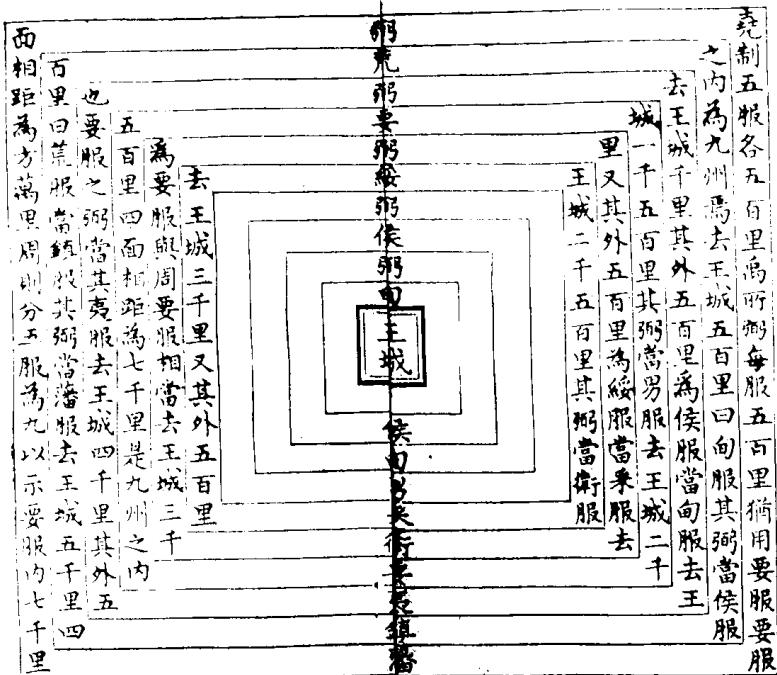 堯制五服各五百里禹所弼每服五百里猶用要服要服
之内為九州焉去王城五百里曰甸服其弼當侯服
去王城千里其外五百里為侯服當甸服去王
城一千五百里其弼當男服去王城二千
里又其外五百里為綏服當采服去
王城二千五百里其弼當衛服
弼荒弼要弼綏弼侯弼甸王城
侯甸男采衛要夷鎮藩
去王城三千里又其外五百里
為要服與周要服相當去王城三千
五百里四面相距為七千里是九州之内
也要服之弼當其夷服去王城四千里其外五
百里曰荒服當鎮服其弼當藩服去王城五千里四
面相距為方萬里周則分五服為九以示要服内七千里